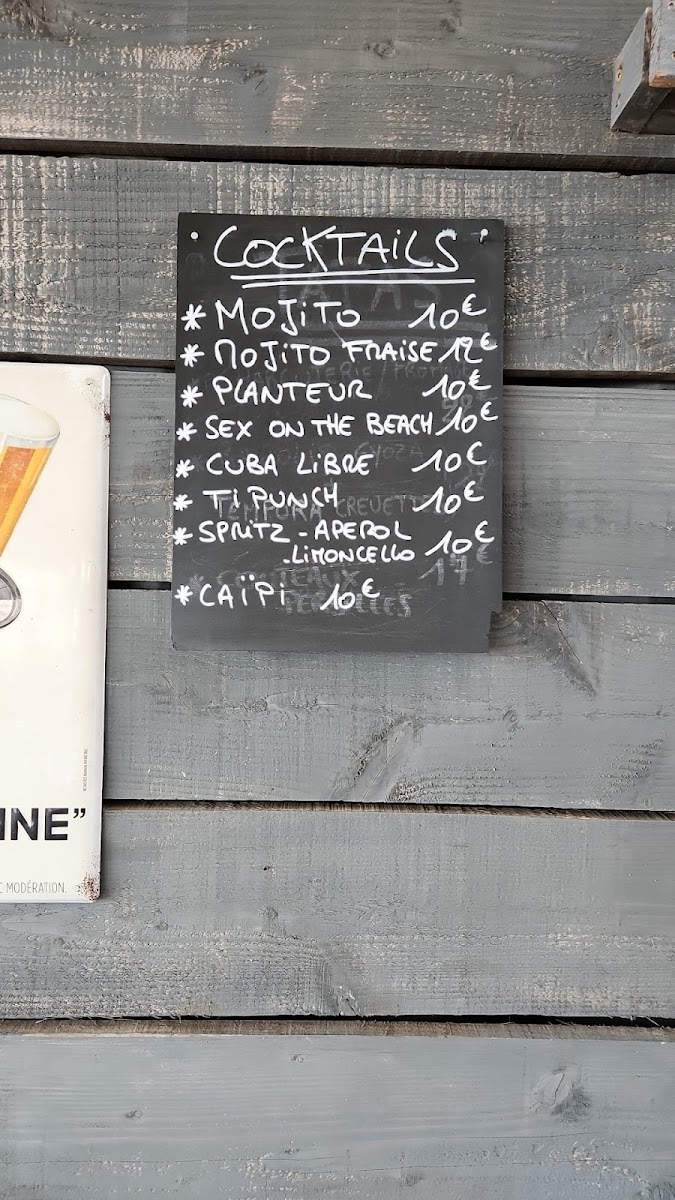 COCKTAILS
* MOJITO 10€
* MOJITO FRAISE 12€
* PLANTEUR 10€
* SEX ON THE BEACH 10€
* CUBA LIBRE 10€
* TI PUNCH 10€
* SPRITZ - APEROL
- LIMONCELLO 10€
* CAÏPI 10€
TAPAS
TEMPURA CREVETTE
COUTEAUX 17€
INE”
C MODÉRATION.